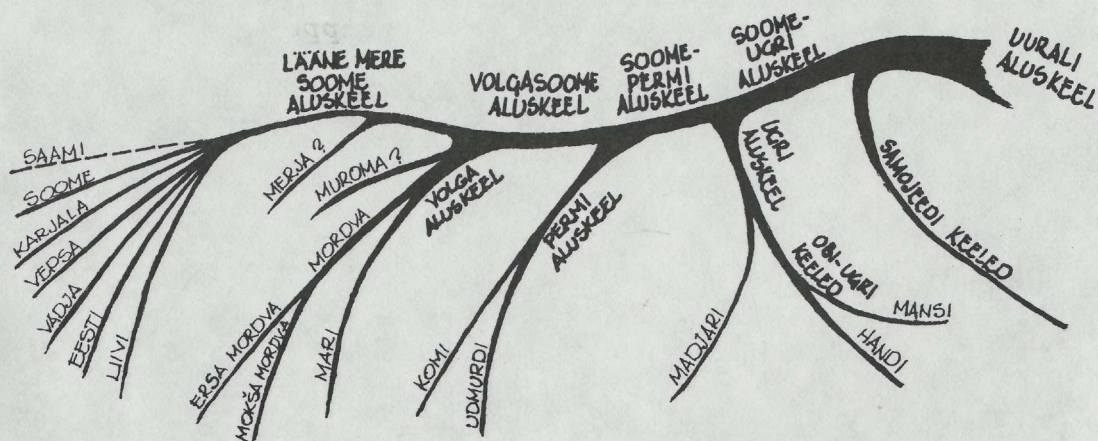 LÄÄNE MERE
SOOME
ALUSKEEL
VOLGASOOME
ALUSKEEL
SOOME-
PERMI
ALUSKEEL
SOOME-
UGRI
ALUSKEEL
UURALI
ALUSKEEL
SAAMI
SOOME
KARJALA
VEPSA
VADJA
EESTI
LIIVI
MERJA?
MUROMA?
VOLGA
ALUSKEEL
MORDVA
ERSA MORDVA
MOKŠA MORDVA
MARI
PERMI
ALUSKEEL
KOMI
UDMURDI
UGRI
ALUSKEEL
MADJARI
OBI-UGRI
KEELED
MANSI
HANDI
SAMOJEEDI KEELED